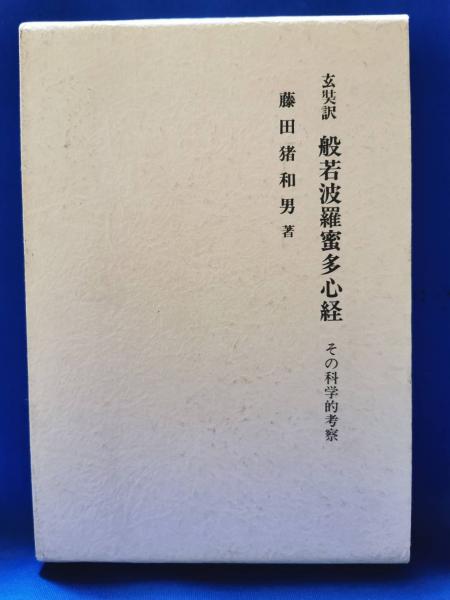 玄奘訳 般若波羅蜜多心経 その科学的考察
藤田猪和男 著